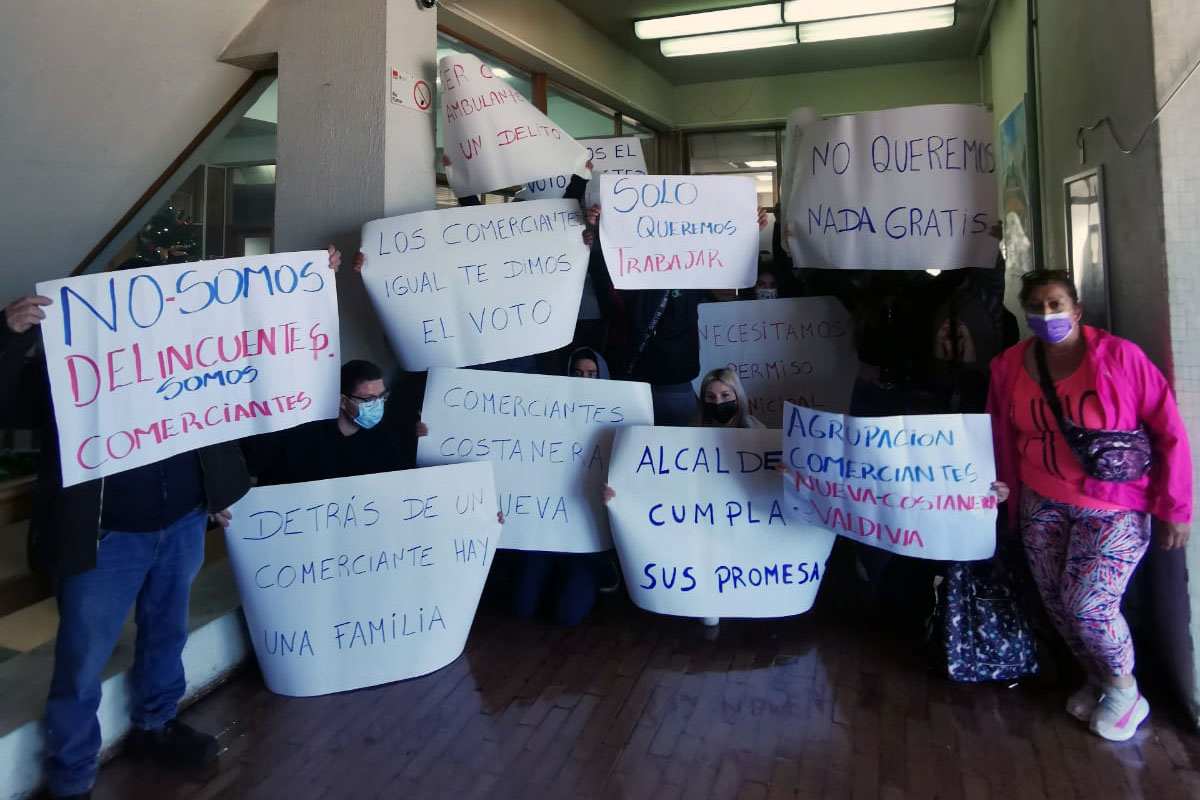 AMBULANTE
UN DELITO
OS EL
VOTO
SOLO
QUEREMOS
TRABAJAR
NO QUEREMOS
NADA GRATIS
LOS COMERCIANTES
IGUAL TE DIMOS
EL VOTO
NO-SOMOS
DELINCUENTES.
SOMOS
COMERCIANTES
NECESITAMOS
PERMISO
COMERCIANTES
COSTANERA
NUEVA
ALCALDE
CUMPLA
SUS PROMESAS
AGRUPACION
COMERCIANTES
NUEVA-COSTANERA
VALDIVIA
DETRÁS DE UN
COMERCIANTE HAY
UNA FAMILIA